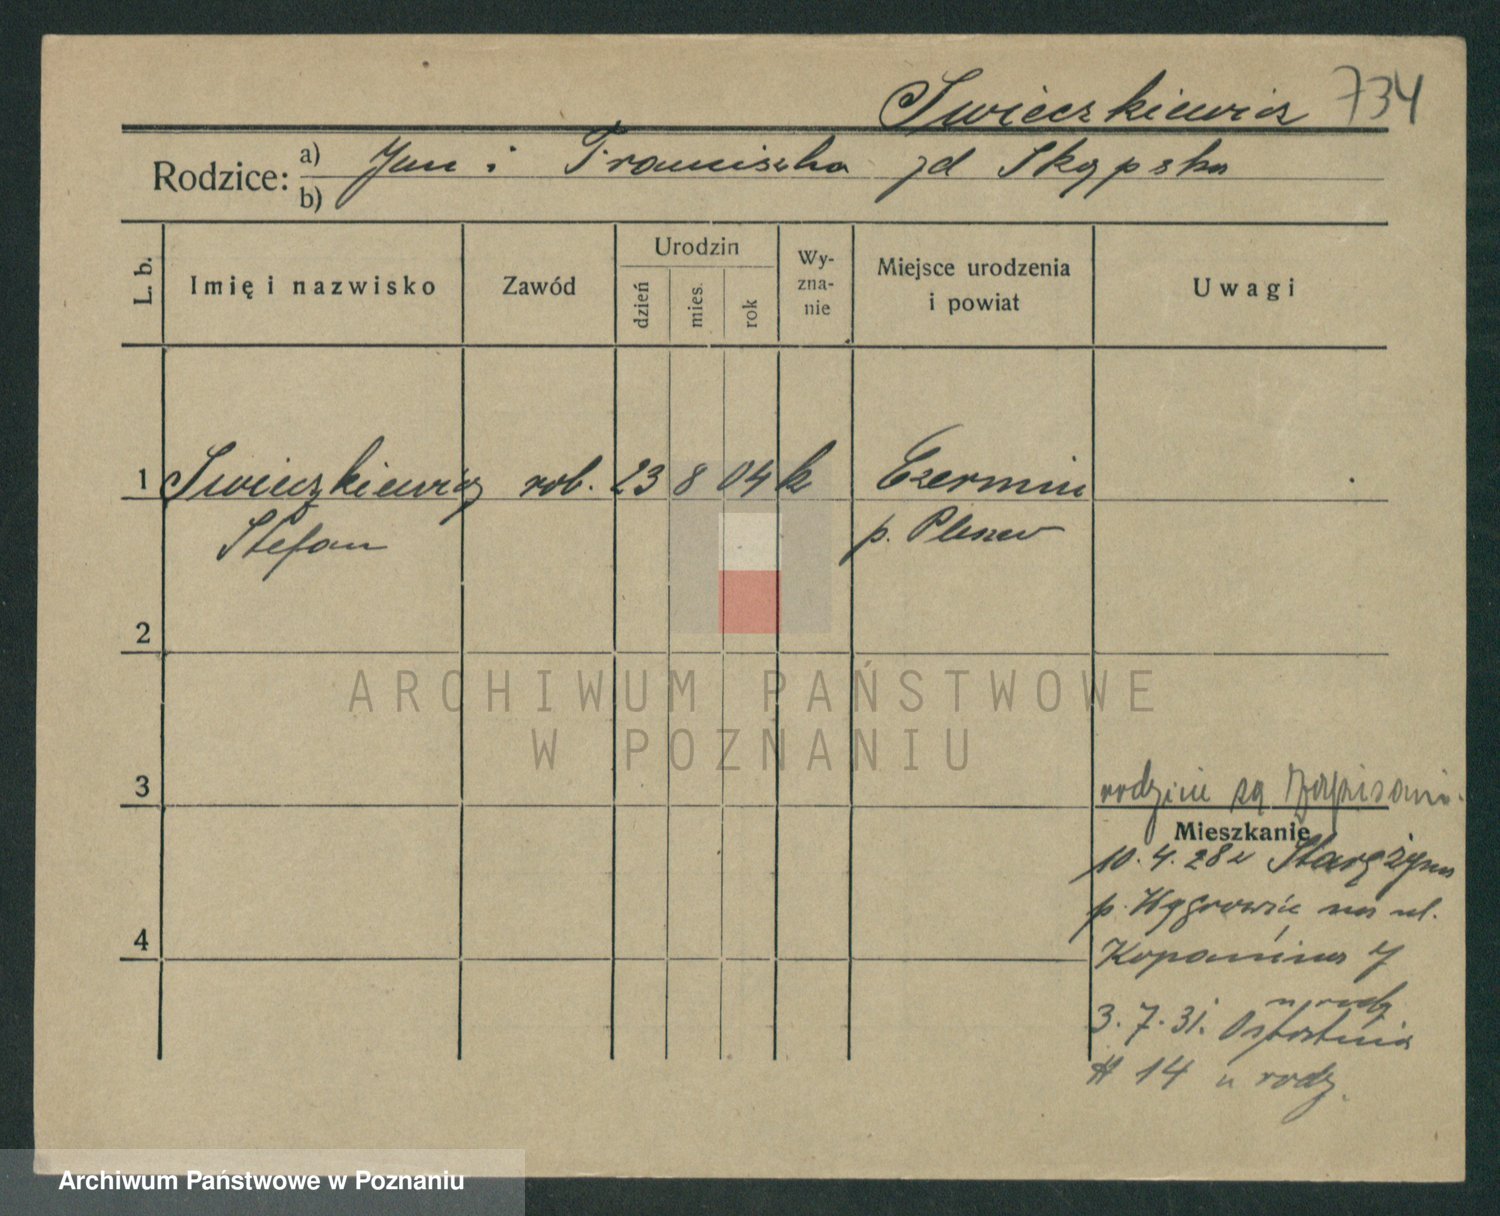 Swieczkiewicz 734
Rodzice: a) Jan i Franciszka zd Skąpska
b)
L. b.
Imię i nazwisko
Zawód
Urodzin
dzień
mies.
rok
Wy-
zna-
nie
Miejsce urodzenia
i powiat
Uwagi
1 Swieczkiewicz rob. 23 8 04 k Czermin
Stefan p. Pleszew
2
ARCHIWUM PAŃSTWOWE
W POZNANIU
3
rodzice są zapisani.
Mieszkanie
10.4.28 z
p. Wągrowiec na ul.
Kopanina 7
u rodz
3.7.31. Ostatnia
14 u rodz.
4
Archiwum Państwowe w Poznaniu